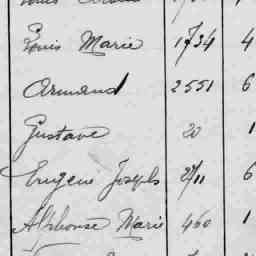 Louis Marie 1734 4
Armand 2551 6
Gustave 20 1
Eugène Joseph 2711 6
Alphonse Marie 460 1